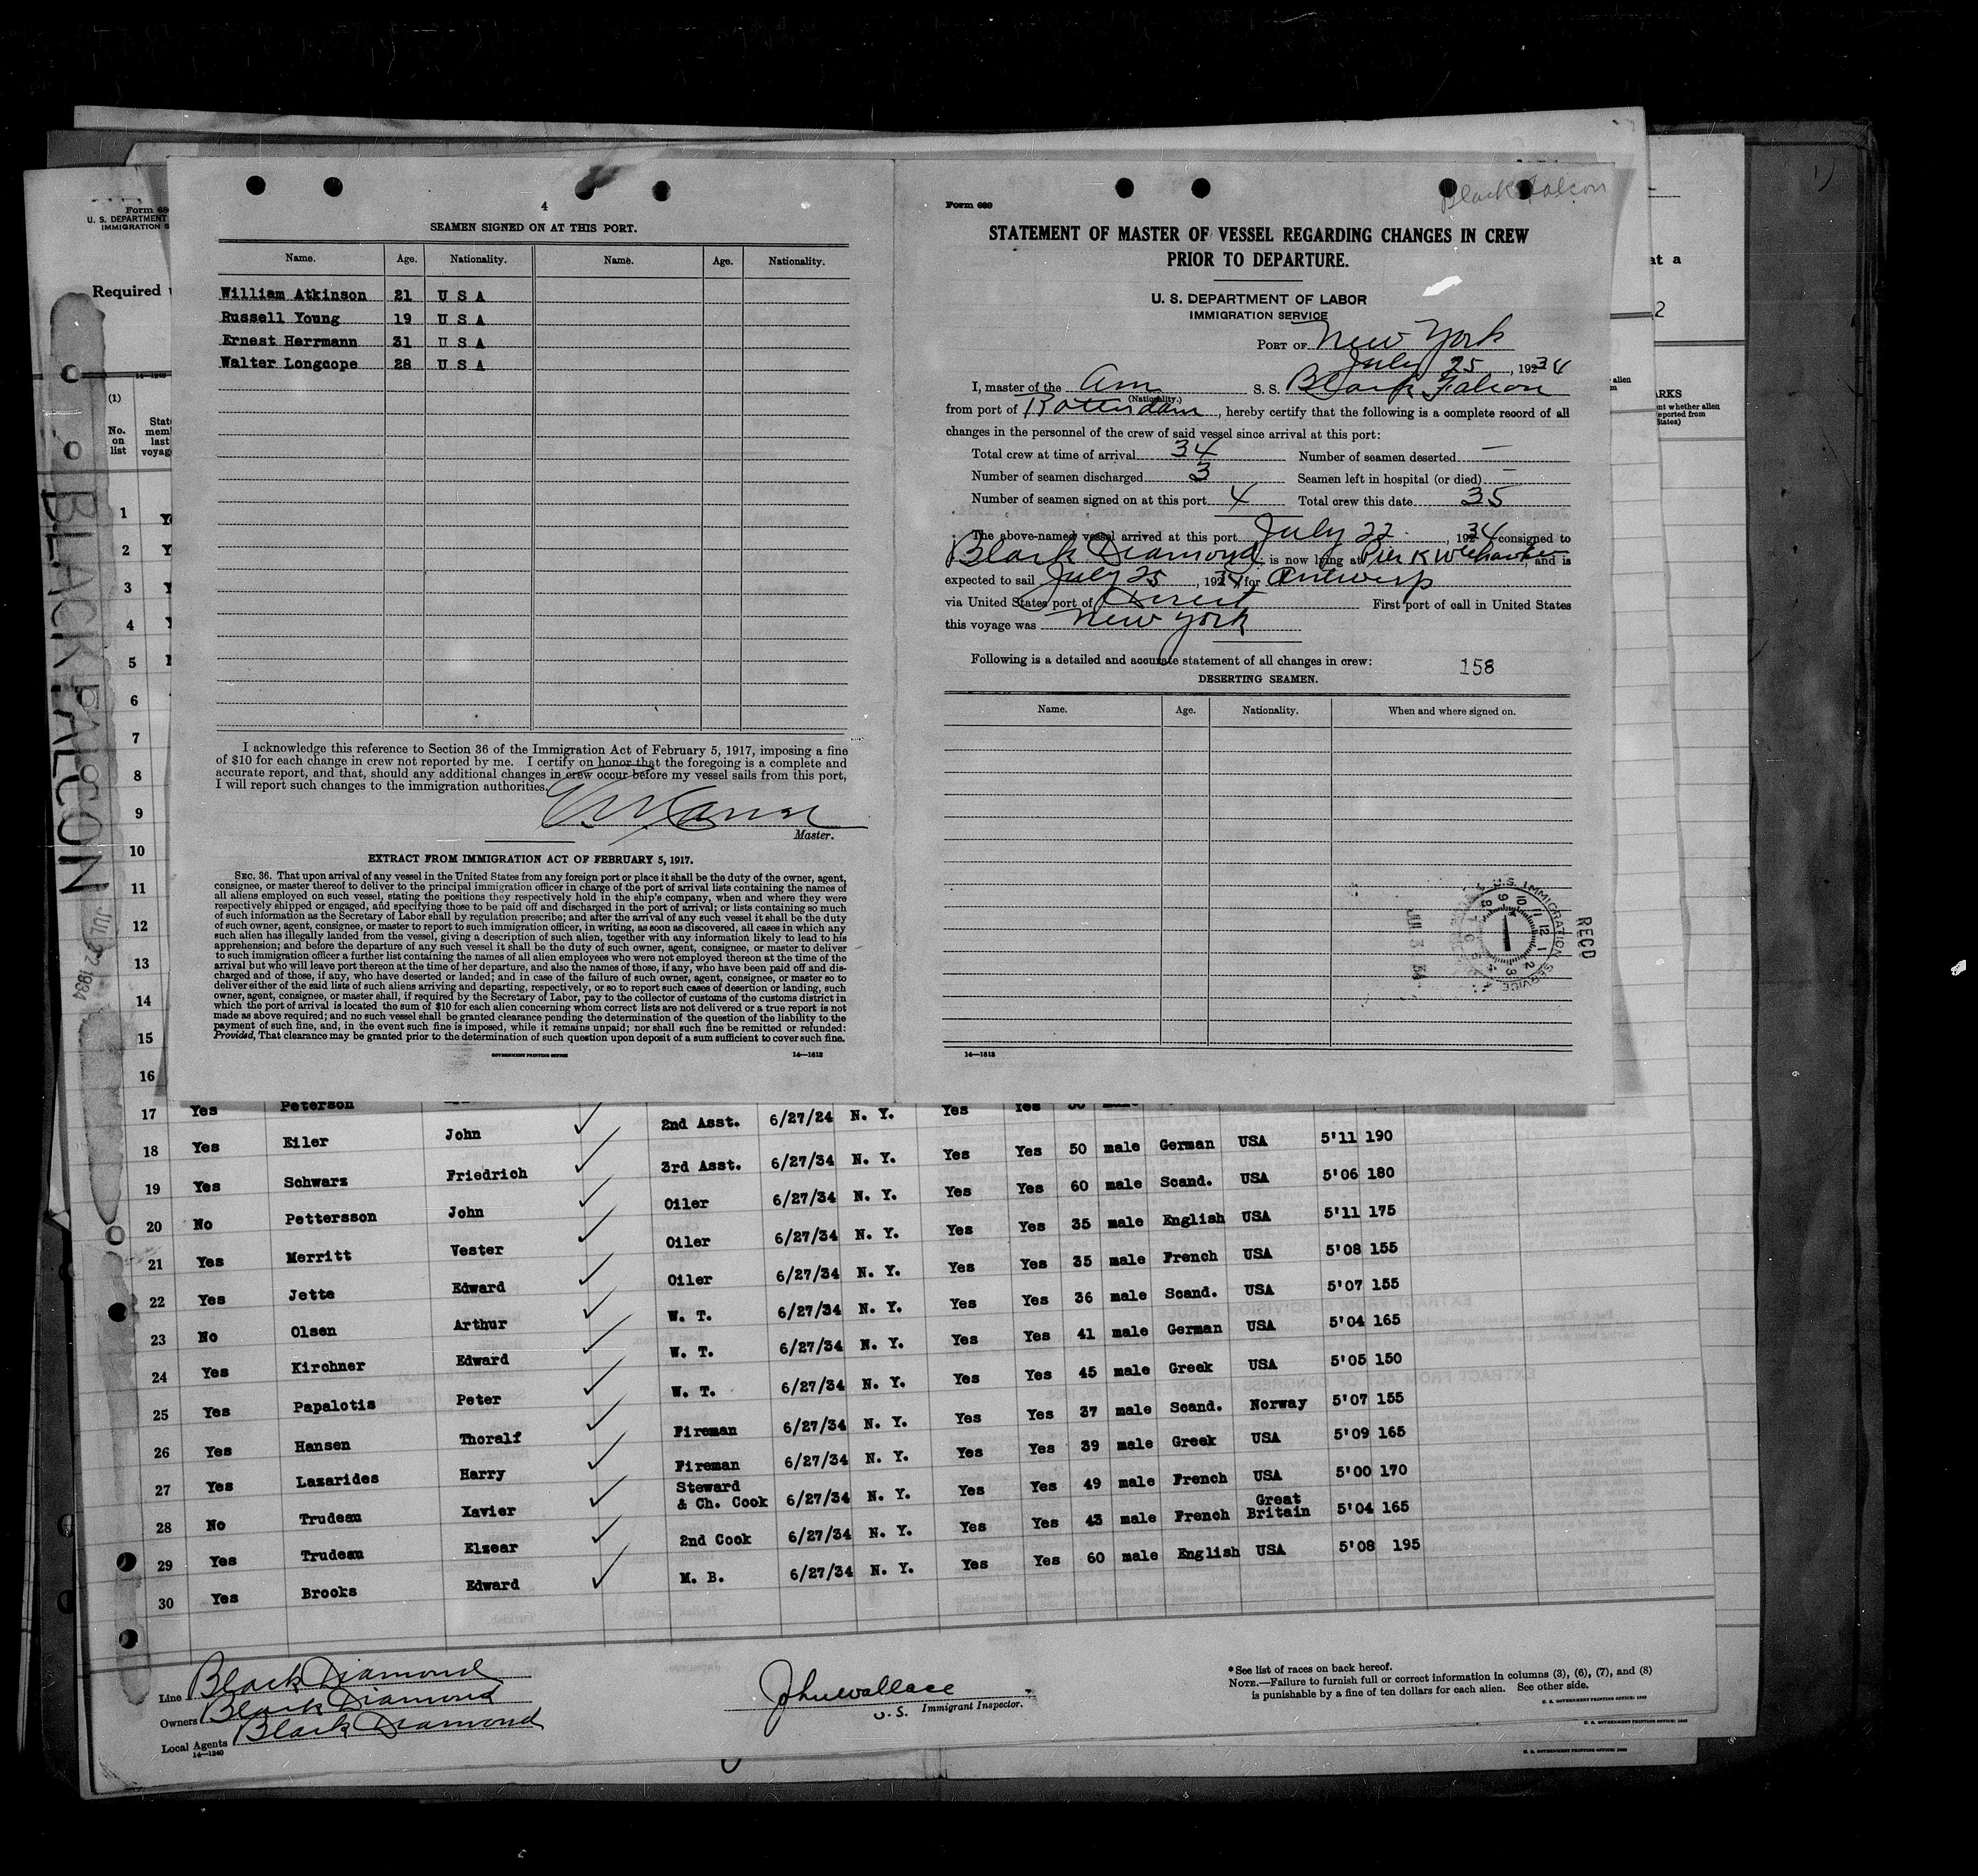 4
SEAMEN SIGNED ON AT THIS PORT.
Name. Age. Nationality. Name. Age. Nationality.
William Atkinson 21 U S A
Russell Young 19 U S A
Ernest Herrmann 31 U S A
Walter Longcope 28 U S A
I acknowledge this reference to Section 36 of the Immigration Act of February 5, 1917, imposing a fine
of $10 for each change in crew not reported by me. I certify on honor that the foregoing is a complete and
accurate report, and that, should any additional changes in crew occur before my vessel sails from this port,
I will report such changes to the immigration authorities.
Master.
EXTRACT FROM IMMIGRATION ACT OF FEBRUARY 5, 1917.
SEC. 36. That upon arrival of any vessel in the United States from any foreign port or place it shall be the duty of the owner, agent,
consignee, or master thereof to deliver to the principal immigration officer in charge of the port of arrival lists containing the names of
all aliens employed on such vessel, stating the positions they respectively hold in the ship's company, when and where they were
respectively shipped or engaged, and specifying those to be paid off and discharged in the port of arrival; or lists containing so much
of such information as the Secretary of Labor shall by regulation prescribe; and after the arrival of any such vessel it shall be the duty
of such owner, agent, consignee, or master to report to such immigration officer, in writing, as soon as discovered, all cases in which any
such alien has illegally landed from the vessel, giving a description of such alien, together with any information likely to lead to his
apprehension; and before the departure of any such vessel it shall be the duty of such owner, agent, consignee, or master to deliver
to such immigration officer a further list containing the names of all alien employees who were not employed thereon at the time of the
arrival but who will leave port thereon at the time of her departure, and also the names of those, if any, who have been paid off and dis-
charged and of those, if any, who have deserted or landed; and in case of the failure of such owner, agent, consignee, or master so to
deliver either of the said lists of such aliens arriving and departing, respectively, or so to report such cases of desertion or landing, such
owner, agent, consignee, or master shall, if required by the Secretary of Labor, pay to the collector of customs of the customs district in
which the port of arrival is located the sum of $10 for each alien concerning whom correct lists are not delivered or a true report is not
made as above required; and no such vessel shall be granted clearance pending the determination of the question of the liability to the
payment of such fine, and, in the event such fine is imposed, while it remains unpaid; nor shall such fine be remitted or refunded:
Provided, That clearance may be granted prior to the determination of such question upon deposit of a sum sufficient to cover such fine.
GOVERNMENT PRINTING OFFICE 14—1613
Black Falcon
Form 689
STATEMENT OF MASTER OF VESSEL REGARDING CHANGES IN CREW
PRIOR TO DEPARTURE.
U. S. DEPARTMENT OF LABOR
IMMIGRATION SERVICE
PORT OF New York
July 25, 192 34
I, master of the Am S. S. Black Falcon
(Nationality.)
from port of Rotterdam, hereby certify that the following is a complete record of all
changes in the personnel of the crew of said vessel since arrival at this port:
Total crew at time of arrival 34 Number of seamen deserted —
Number of seamen discharged 3 Seamen left in hospital (or died) —
Number of seamen signed on at this port 4 Total crew this date 35
The above-named vessel arrived at this port July 22, 192 34 consigned to
Black Diamond, is now lying at Pier K Weehawken, and is
expected to sail July 25, 192 34, for Antwerp
via United States port of Direct First port of call in United States
this voyage was New York
Following is a detailed and accurate statement of all changes in crew: 158
DESERTING SEAMEN.
Name. Age. Nationality. When and where signed on.
U.S. IMMIGRATION SERVICE
RECD
14—1613
Form 68
U. S. DEPARTMENT
IMMIGRATION S
Required
14—1240
(1)
No.
on
list
State
mem
last
voyag
BLACK FALCON
JUL 22 1934
at a
2
alien
ARKS
nt whether alien
eported from
States)
1
2
3
4
5
6
7
8
9
10
11
12
13
14
15
16
17 Yes Peterson 2nd Asst. 6/27/24 N. Y. Yes Yes
18 Yes Eiler John 3rd Asst. 6/27/34 N. Y. Yes Yes 50 male German USA 5'11 190
19 Yes Schwarz Friedrich Oiler 6/27/34 N. Y. Yes Yes 60 male Scand. USA 5'06 180
20 No Pettersson John Oiler 6/27/34 N. Y. Yes Yes 35 male English USA 5'11 175
21 Yes Merritt Vester Oiler 6/27/34 N. Y. Yes Yes 35 male French USA 5'08 155
22 Yes Jette Edward W. T. 6/27/34 N. Y. Yes Yes 36 male Scand. USA 5'07 155
23 No Olsen Arthur W. T. 6/27/34 N. Y. Yes Yes 41 male German USA 5'04 165
24 Yes Kirchner Edward W. T. 6/27/34 N. Y. Yes Yes 45 male Greek USA 5'05 150
25 Yes Papalotis Peter Fireman 6/27/34 N. Y. Yes Yes 37 male Scand. Norway 5'07 155
26 Yes Hansen Thoralf Fireman 6/27/34 N. Y. Yes Yes 39 male Greek USA 5'09 165
27 Yes Lazarides Harry Steward & Ch. Cook 6/27/34 N. Y. Yes Yes 49 male French USA 5'00 170
28 No Trudeau Xavier 2nd Cook 6/27/34 N. Y. Yes Yes 43 male French Great Britain 5'04 165
29 Yes Trudeau Elzear M. B. 6/27/34 N. Y. Yes Yes 60 male English USA 5'08 195
30 Yes Brooks Edward
Line Black Diamond
Owners Black Diamond
Local Agents Black Diamond
14—1240
John Wallace
U. S. Immigrant Inspector.
*See list of races on back hereof.
NOTE.—Failure to furnish full or correct information in columns (3), (6), (7), and (8)
is punishable by a fine of ten dollars for each alien. See other side.
U. S. GOVERNMENT PRINTING OFFICE: 1932
U. S. GOVERNMENT PRINTING OFFICE: 1932
U. S. GOVERNMENT PRINTING OFFICE: 1932